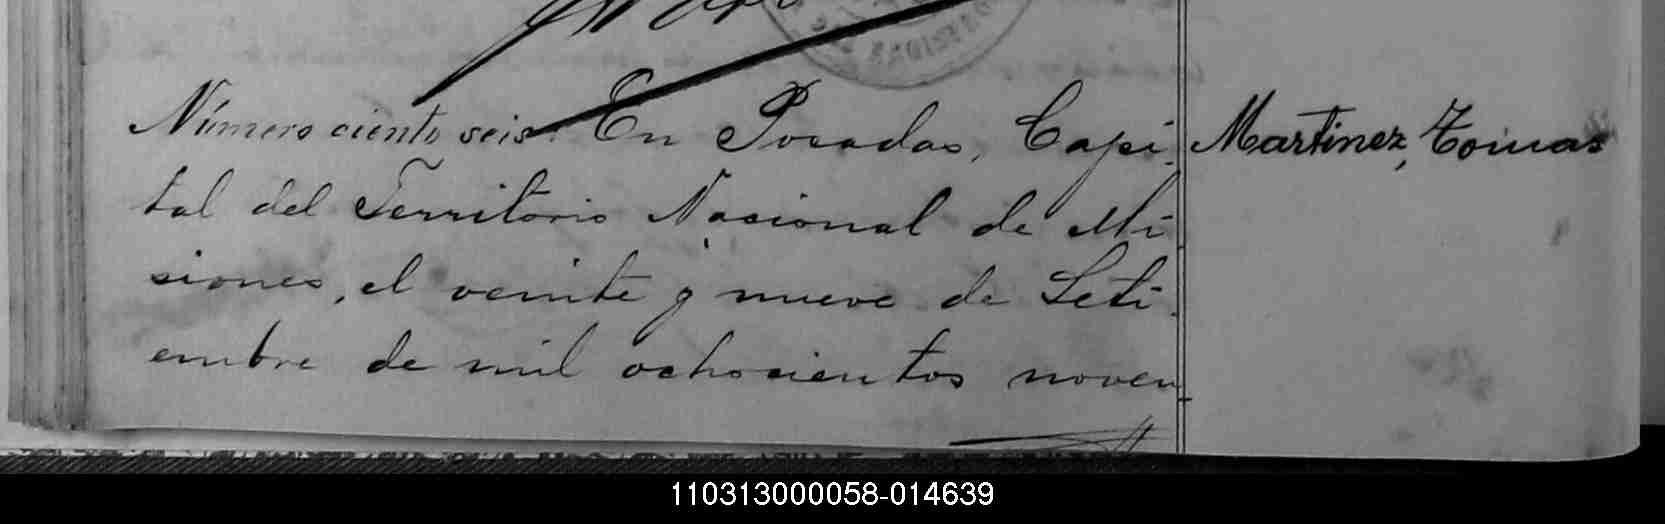 Número ciento seis. En Posadas, Capi
Martinez, Tomas
tal del Territorio Nacional de Mi
siones, el veinte y nueve de Seti
embre de mil ochocientos noven
110313000058-014639